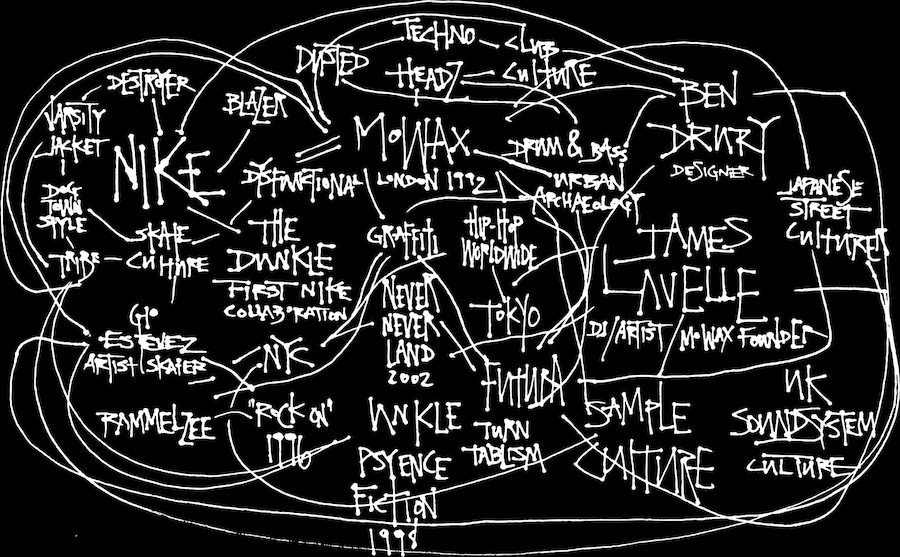 DUSTED
TECHNO
CLUB
HEADZ
CULTURE
DESTROYER
VARSITY
JACKET
BLAZER
NIKE
MO WAX
LONDON 1992
DYSFUNCTIONAL
DRUM & BASS
URBAN
ARCHAEOLOGY
BEN
DRURY
DESIGNER
JAPANESE
STREET
CULTURE
DOG
TOWN
STYLE
TRIBE
SKATE
CULTURE
THE
DUNKLE
FIRST NIKE
COLLABORATION
GRAFFITI
HIP-HOP
WORLDWIDE
JAMES
LAVELLE
DJ/ARTIST
MOWAX FOUNDER
NEVER
NEVER
LAND
2002
TOKYO
ESTEVEZ
ARTIST/SKATER
NYC
FUTURA
RAMMELZEE
"ROCK ON"
1996
UNKLE
PSYENCE
FICTION
1998
TURN
TABLISM
SAMPLE
CULTURE
UK
SOUNDSYSTEM
CULTURE